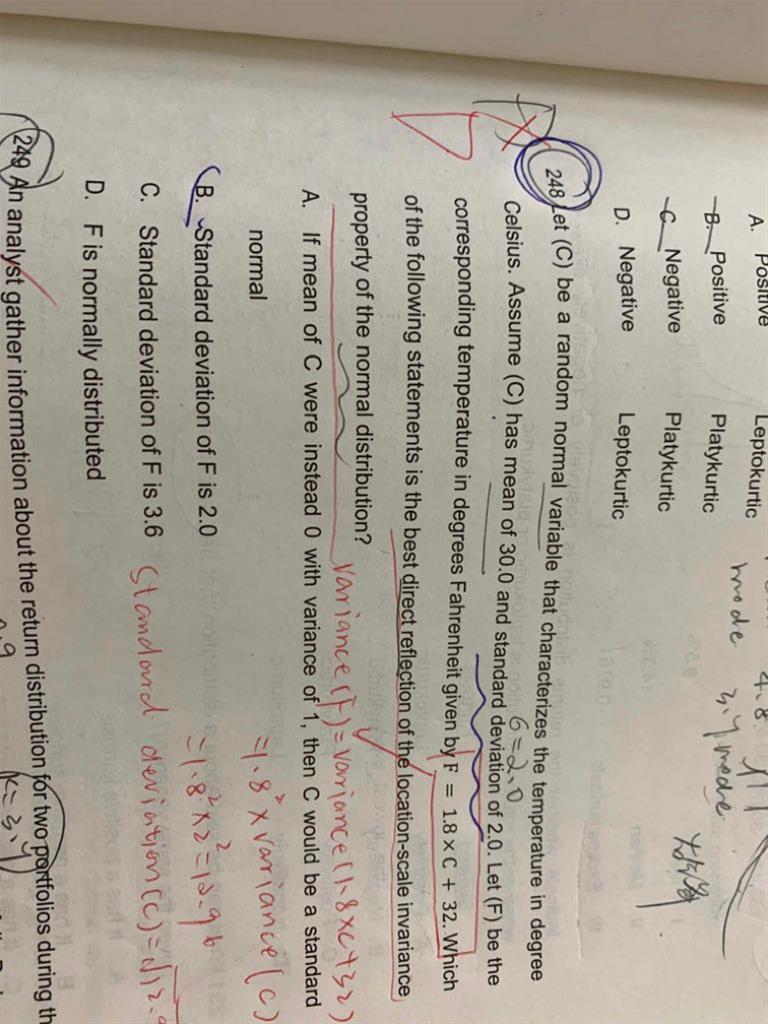 A. Positive Leptokurtic
B. Positive Platykurtic
C. Negative Platykurtic
D. Negative Leptokurtic
4.8
mode 3.4 mode
248 Let (C) be a random normal variable that characterizes the temperature in degree
Celsius. Assume (C) has mean of 30.0 and standard deviation of 2.0. Let (F) be the
6=2.0
corresponding temperature in degrees Fahrenheit given by F = 1.8 × C + 32. Which
of the following statements is the best direct reflection of the location-scale invariance
property of the normal distribution?
variance(F)=variance(1.8×C+32)
A. If mean of C were instead 0 with variance of 1, then C would be a standard
normal
=1.8²×variance(C)
B. Standard deviation of F is 2.0
=1.8²×2²=12.96
C. Standard deviation of F is 3.6
Standard deviation(C)=√12.9
D. F is normally distributed
249 An analyst gather information about the return distribution for two portfolios during th
k=3.4